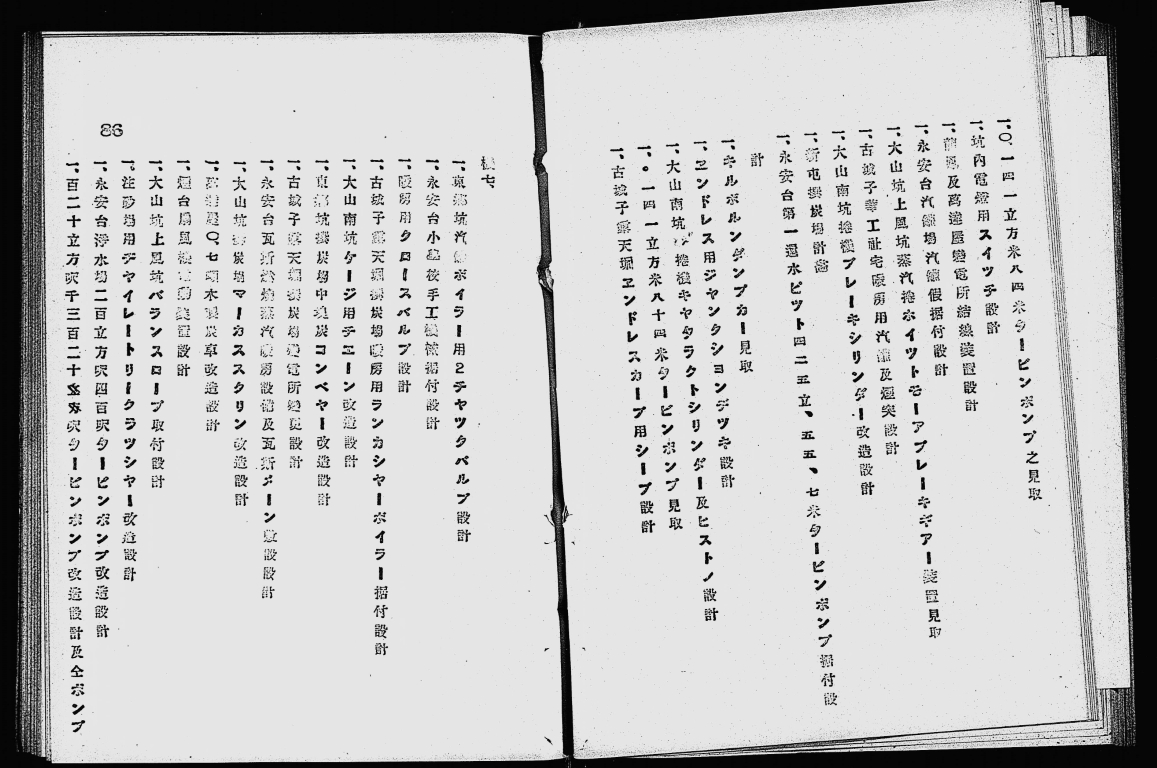 一、〇・一四一立方米八四米タービンポンプ之見取
一、坑內電燈用スイツチ設計
一、 及萬達屋變電所結線裝置設計
一、永安台汽罐場汽罐假据付設計
一、大山坑上風坑蒸汽捲ホイツトモーアブレーキギアー裝置見取
一、古城子華工社宅暖房用汽罐及煙突設計
一、大山南坑捲機ブレーキシリンダー改造設計
一、新屯選炭場計畫
一、永安台第一還水ピツト四二五立、五五、七米タービンポンプ据付設
計
一、キルボルンダンプカー見取
一、エンドレス用ジヤンクシヨンデツキ設計
一、大山南坑 捲機キヤタラクトシリンダー及ヒストノ設計
一、〇・一四一立方米八十四米タービンポンプ見取
一、古城子露天堀エンドレスカーブ用シーブ設計
機七、
一、東鄕坑汽罐ボイラー用2チヤツクバルブ設計
一、永安台小學校手工機械据付設計
一、暖房用クロースバルブ設計
一、古城子露天堀選炭場暖房用ランカシヤーボイラー据付設計
一、大山南坑ケージ用チエーン改造設計
一、東鄕坑選炭場中塊炭コンベヤー改造設計
一、古城子露天堀選炭場變電所變更設計
一、永安台瓦斯 蒸汽暖房設備及瓦斯メーン敷設設計
一、大山坑選炭場マーカススクリン改造設計
一、 〇七 木製炭車改造設計
一、煙台扇風機 裝置設計
一、大山坑上風坑バランスロープ取付設計
一、注砂場用ヂヤイレートリークラツシヤー改造設計
一、永安台淨水場二百立方呎四百呎タービンポンプ改造設計
一、百二十立方呎千三百二十 呎タービンポンプ改造設計及仝ポンプ
86